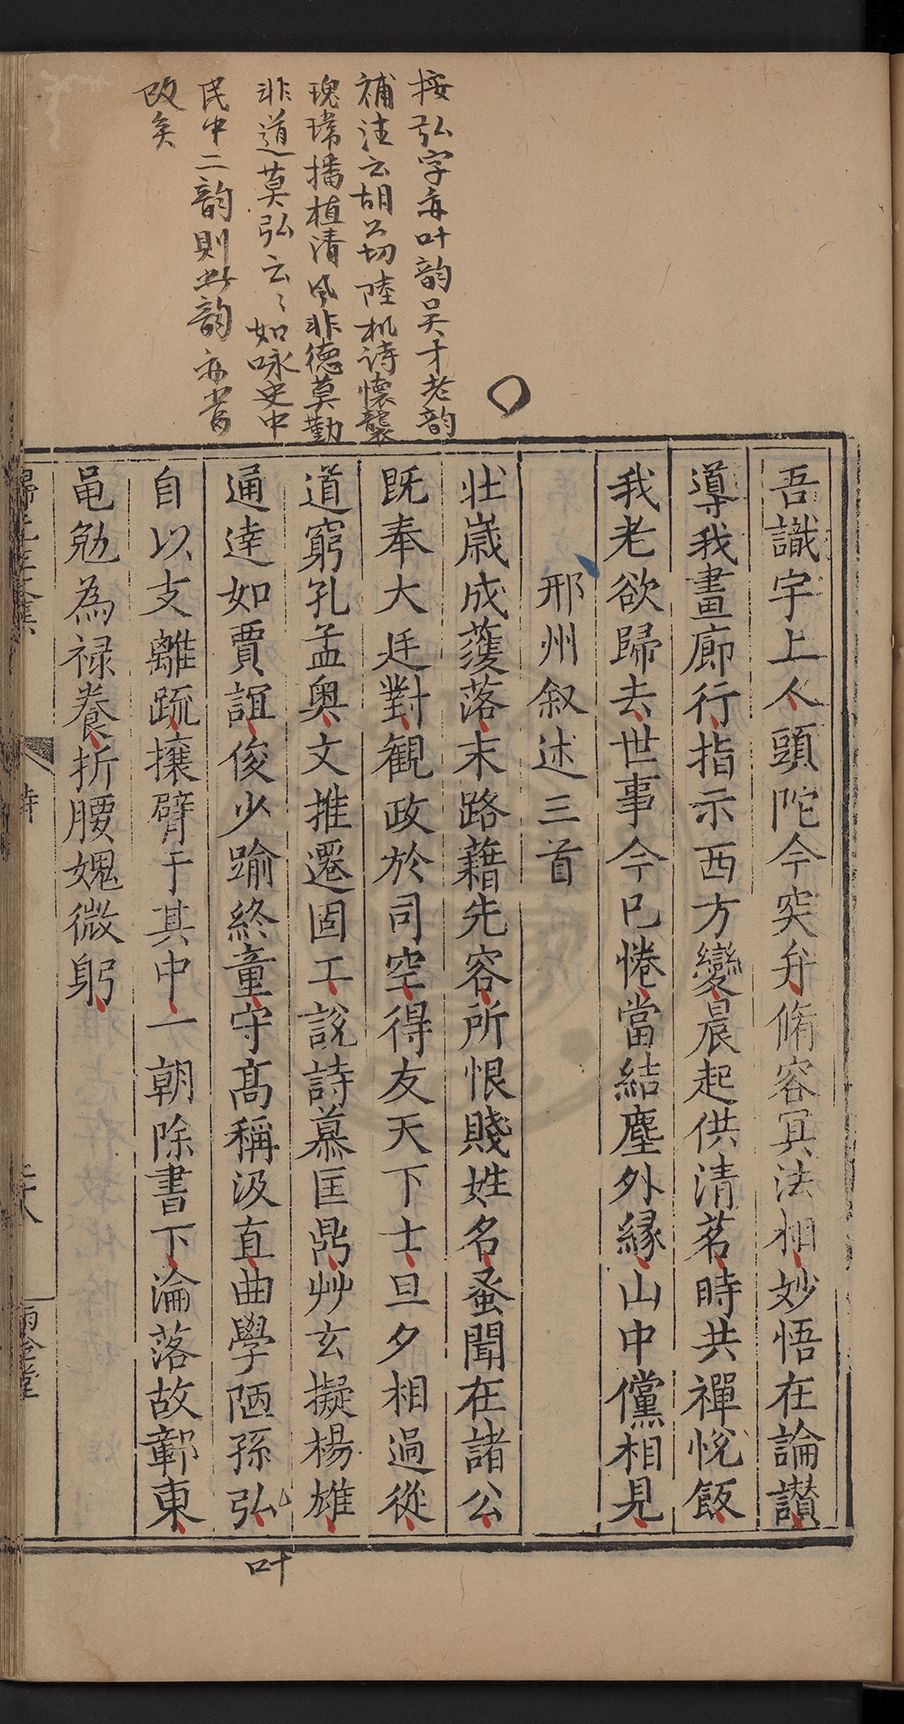 按弘字亦叶韵吴才老韵
補注云胡公切陸机詩懷襲
瑰瑋播植清风非德莫勤
非道莫弘云〻如咏史中
民中二韵則此韵亦當
改矣
吾識宇上人頭陀今突弁脩容冥法相妙悟在論讃
導我畫廊行指示西方變晨起供清茗時共禪悅飯
我老欲歸去世事今已惓當結塵外緣山中儻相見
邢州叙述三首
壮歲成蒦落末路藉先容所恨賤姓名蚤聞在諸公
既奉大廷對觀政於司空得友天下士旦夕相過從
道窮孔孟奥文推遷固工說詩慕匡鼎艸玄擬楊雄
通達如賈誼俊少踰終童守高稱汲直曲學陋孫弘
叶
自以支離疏攘臂于其中一朝除書下淪落故鄣東
黽勉為禄養折腰媿微躬
詩